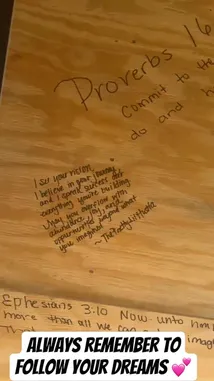 Proverbs 16
Commit to the
do and h
I see your vision
I believe in your journey
and I speak success over
everything you're building
May you overflow with
abundance, joy, and
opportunities beyond what
you imagined
Ephesians 3:10 Now unto him
more than all we can imag
ALWAYS REMEMBER TO
FOLLOW YOUR DREAMS 💕